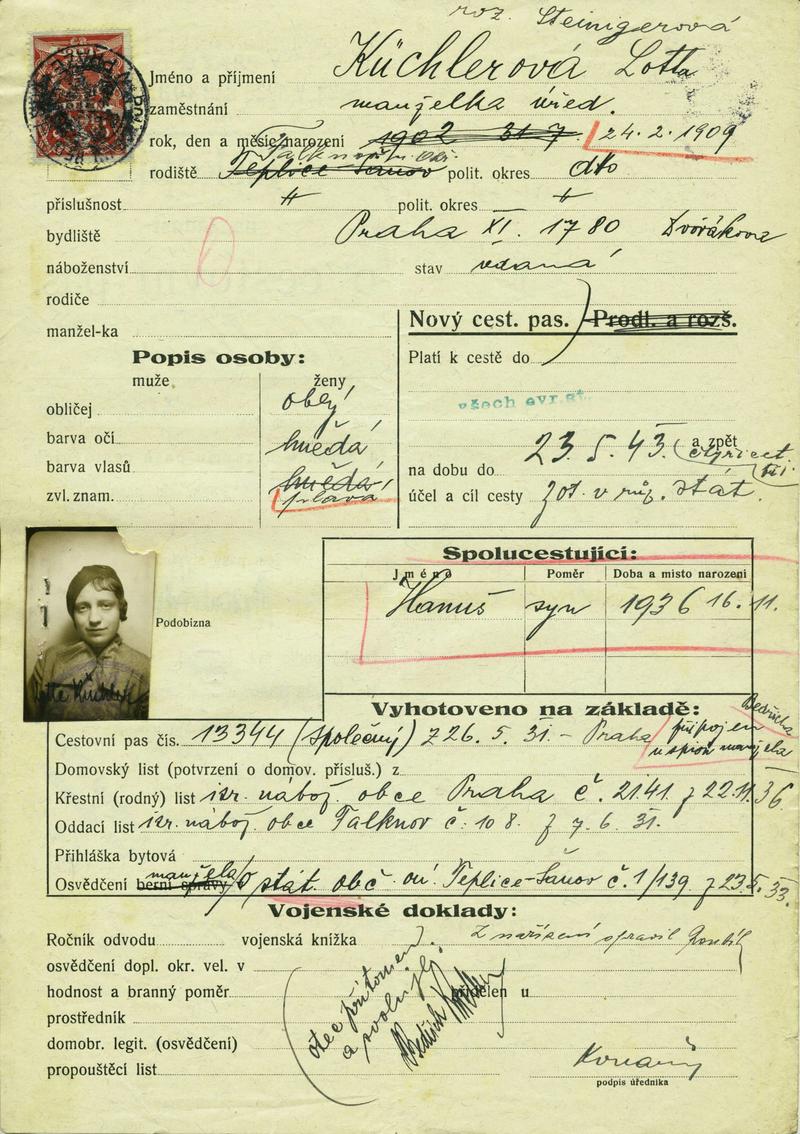 roz. Steinigerová
Jméno a příjmení Küchlerová Lotta
zaměstnání manželka úřed.
rok, den a měsíc narození 1902 31 7 24. 2. 1909
rodiště Teplice Šanov polit. okres dto
příslušnost " polit. okres "
bydliště Praha XI. 1780 Dvořákova
náboženství stav vdaná
rodiče
manžel-ka
Nový cest. pas. Prodl. a rozš.
Platí k cestě do
všech evr. st.
a zpět
na dobu do 23. 5. 43. (čtyřicet tři.
účel a cíl cesty zot. v růz. stát.
Popis osoby:
muže ženy
obličej oblý
barva očí hnědá
barva vlasů hnědá
zvl. znam. plavá
Podobizna
Lotte Küchler
Spolucestující:
Jméno Poměr Doba a místo narození
Hanuš syn 1936 16. 11.
Vyhotoveno na základě:
Cestovní pas čís. 13344 (společný) z 26. 5. 31. – Praha připojen
Bedřicha
manžela
Domovský list (potvrzení o domov. přísluš.) z
Křestní (rodný) list izr. nábož. obce Praha č. 2141. z 22. 11. 36
Oddací list izr. nábož. obce Falknov č. 108. z 7. 6. 31.
Přihláška bytová
manžela
Osvědčení berní správy o stát. obč. oú. Teplice-Šanov č. 1/139. z 23. 5. 33.
Vojenské doklady:
Ročník odvodu vojenská knížka
Z nařízení spravil
osvědčení dopl. okr. vel. v
hodnost a branný poměr přidělen u
prostředník
domobr. legit. (osvědčení)
propouštěcí list
otec přítomen
a svoluje
Bedřich Küchler
podpis úředníka